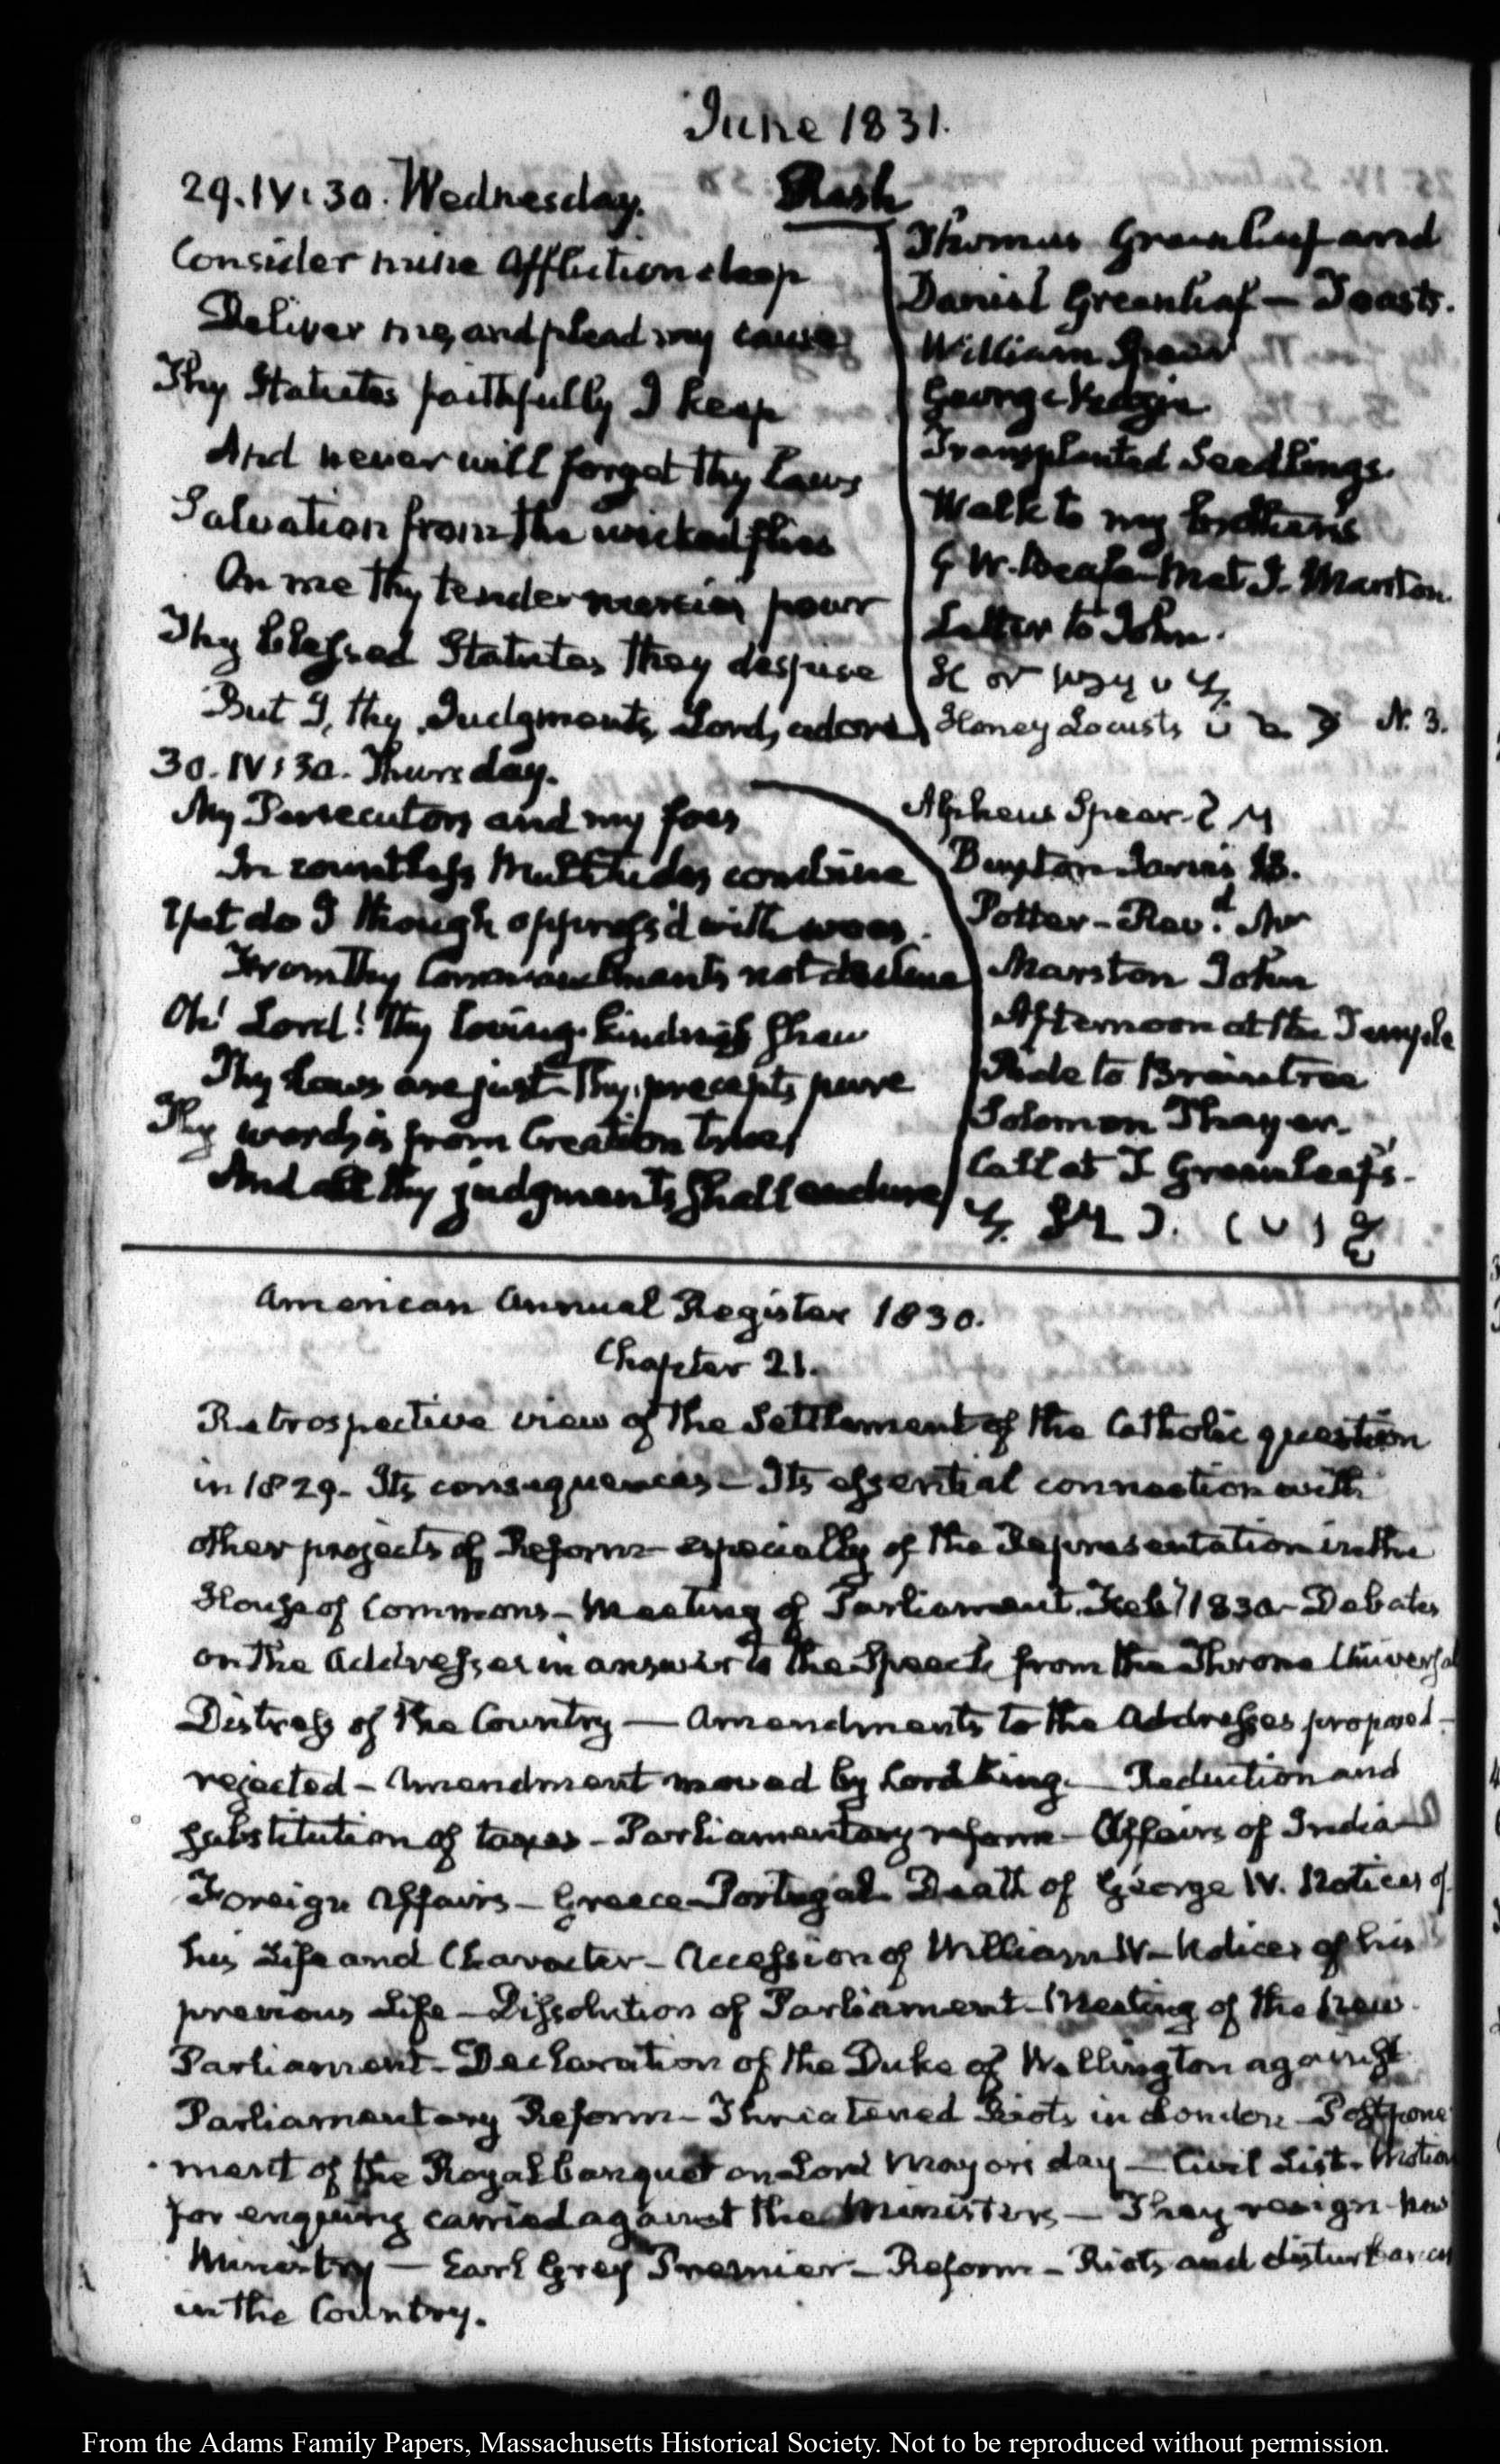 June 1831.
29. IV: 30. Wednesday.
Consider mine Affliction deep
Deliver me, and plead my cause
Thy Statutes faithfully I keep
And never will forget thy Laws
Salvation from the wicked flies
On me thy tender mercies pour
Thy blessed Statutes they despise
But I, thy Judgments, Lord, adore
Rash
Thomas Greenleaf and
Daniel Greenleaf — Toasts.
William Spear
George
Transplanted Seedlings.
Walk to my brother's
G W. Beale Met J. Marston.
Letter to John.
Honey Locusts N. 3.
30. IV: 30. Thursday.
My Persecutors and my foes
In countless Multitudes combine
Yet do I though oppress'd with woes
From thy Commandments not decline
Oh! Lord! thy loving-kindness shew
Thy Laws are just thy precepts pure
Thy word is from Creation true
And all thy judgments shall endure
Alpheus Spear
Potter - Revd. Mr
Marston John
Afternoon at the Temple
Ride to Braintree
Solomon Thayer.
Call at T Greenleaf's.
American Annual Register 1830.
Chapter 21.
Retrospective view of the Settlement of the Catholic question
in 1829 - Its consequences - Its essential connection with
other projects of Reform - especially of the Representation in the
House of Commons - Meeting of Parliament. Feby 1830 - Debates
on the Addresses in answer to the Speech from the Throne Universal
Distress of the Country — Amendments to the Addresses proposed -
rejected - Amendment moved by Lord King. — Reduction and
substitution of taxes - Parliamentary reform - Affairs of India
Foreign Affairs - Greece - Portugal. Death of George IV. Notices of
his Life and Character - Accession of William IV - Notices of his
previous Life - Dissolution of Parliament - Meeting of the new
Parliament - Declaration of the Duke of Wellington against
Parliamentary Reform - Threatened Riots in London - Postpone
ment of the Royal banquet on Lord Mayors day — Civil List. Motion
for enquiry carried against the Ministers — They resign - New
Ministry — Earl Grey Premier - Reform - Riots and disturbances
in the Country.
From the Adams Family Papers, Massachusetts Historical Society. Not to be reproduced without permission.